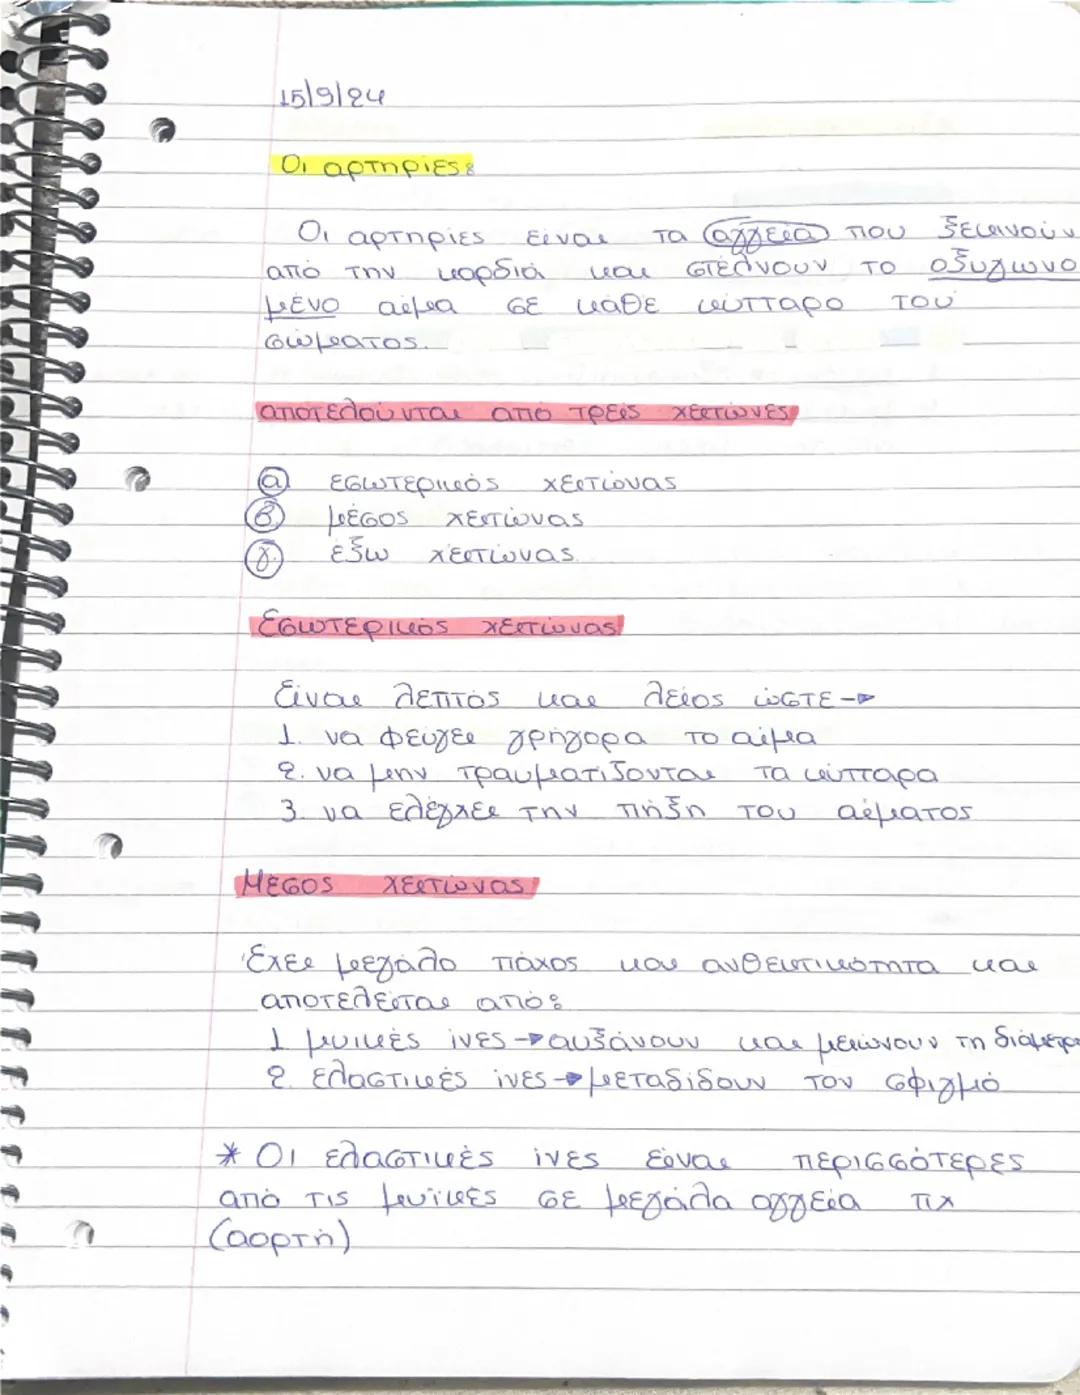 15/9/24
Οι αρτηρίες:
Οι αρτηρίες είναι τα αγγεία που ξεκινούν
από την καρδιά και στέλνουν το οξυγωνο
μένο αίμα σε κάθε κύτταρο του
σώματος.
αποτελούνται από τρεις χειτώνες
α εσωτερικός χειτώνας
β. μέσος χειτώνας
γ. έξω χειτώνας.
Εσωτερικός χειτώνας
Είναι λεπτός και λείος ώστε→
1. να φεύγει γρήγορα το αίμα
2. να μην τραυματίζονται τα κύτταρα
3. να ελέγχει την πήξη του αίματος
Μέσος χειτώνας
Έχει μεγάλο πάχος και ανθεκτικότητα και
αποτελείται από:
1 μυικές ίνες→αυξάνουν και μειώνουν τη διάμετρο
2. ελαστικές ίνες→μεταδίδουν τον σφιγμό
* Οι ελαστικές ίνες είναι περισσότερες
από τις μυϊκές σε μεγάλα αγγεία πχ
(αορτή)